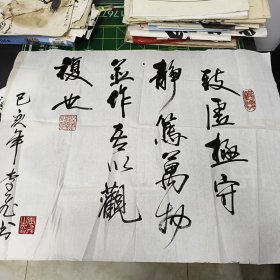 致虚極守
静篤萬物
並作吾以觀
復也
己亥年
書